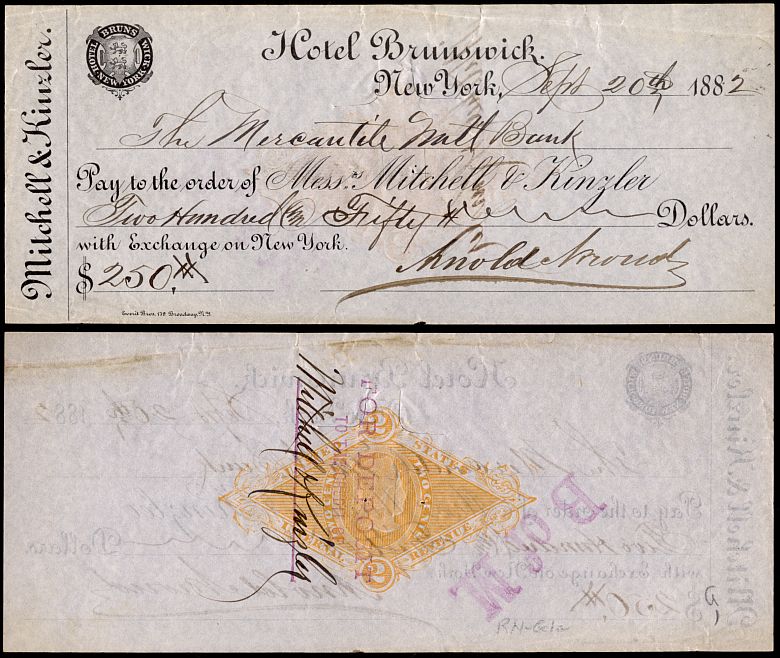 Mitchell & Kinzler.
HOTEL BRUNSWICK NEW YORK
Hotel Brunswick.
New York, Sept 20th 1882
The Mercantile Natl Bank
Pay to the order of Messrs Mitchell & Kinzler
Two Hundred & Fifty Dollars.
with Exchange on New York.
$250.
Arnold
Everit Bros. 178 Broadway, N.Y.
FOR DEPOSIT
TO
Mitchell & Kinzler
UNITED STATES
INTERNAL REVENUE
TWO CENTS
2
2
B of M